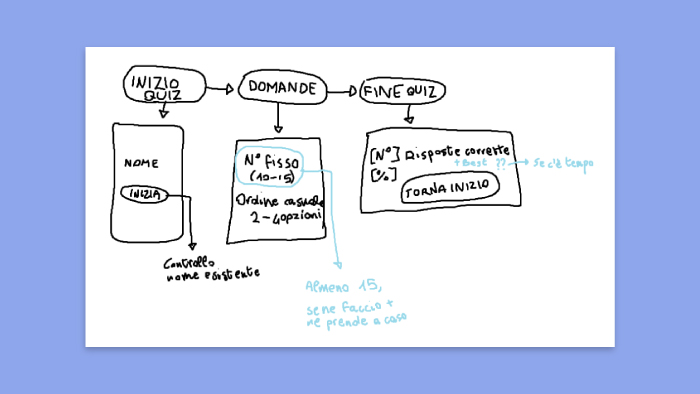 INIZIO
QUIZ
DOMANDE
FINE QUIZ
NOME
INIZIA
Controllo
nome esistente
N° fisso
(10-15)
Ordine casuale
2-4 opzioni
Almeno 15,
se ne faccio +
ne prende a caso
[N°] Risposte corrette
+Best ?? → Se c'è tempo
[%]
TORNA INIZIO